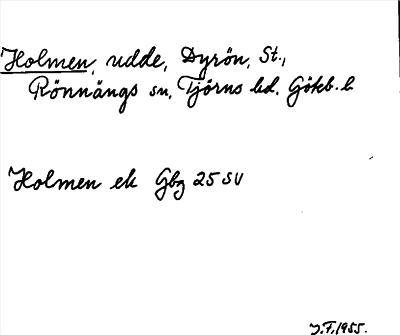 Holmen, udde, Dyrön, St.,
Rönnängs sn, Tjörns hd. Götb. l.
Holmen ek Gbg 25 SV
J.F. 1955.